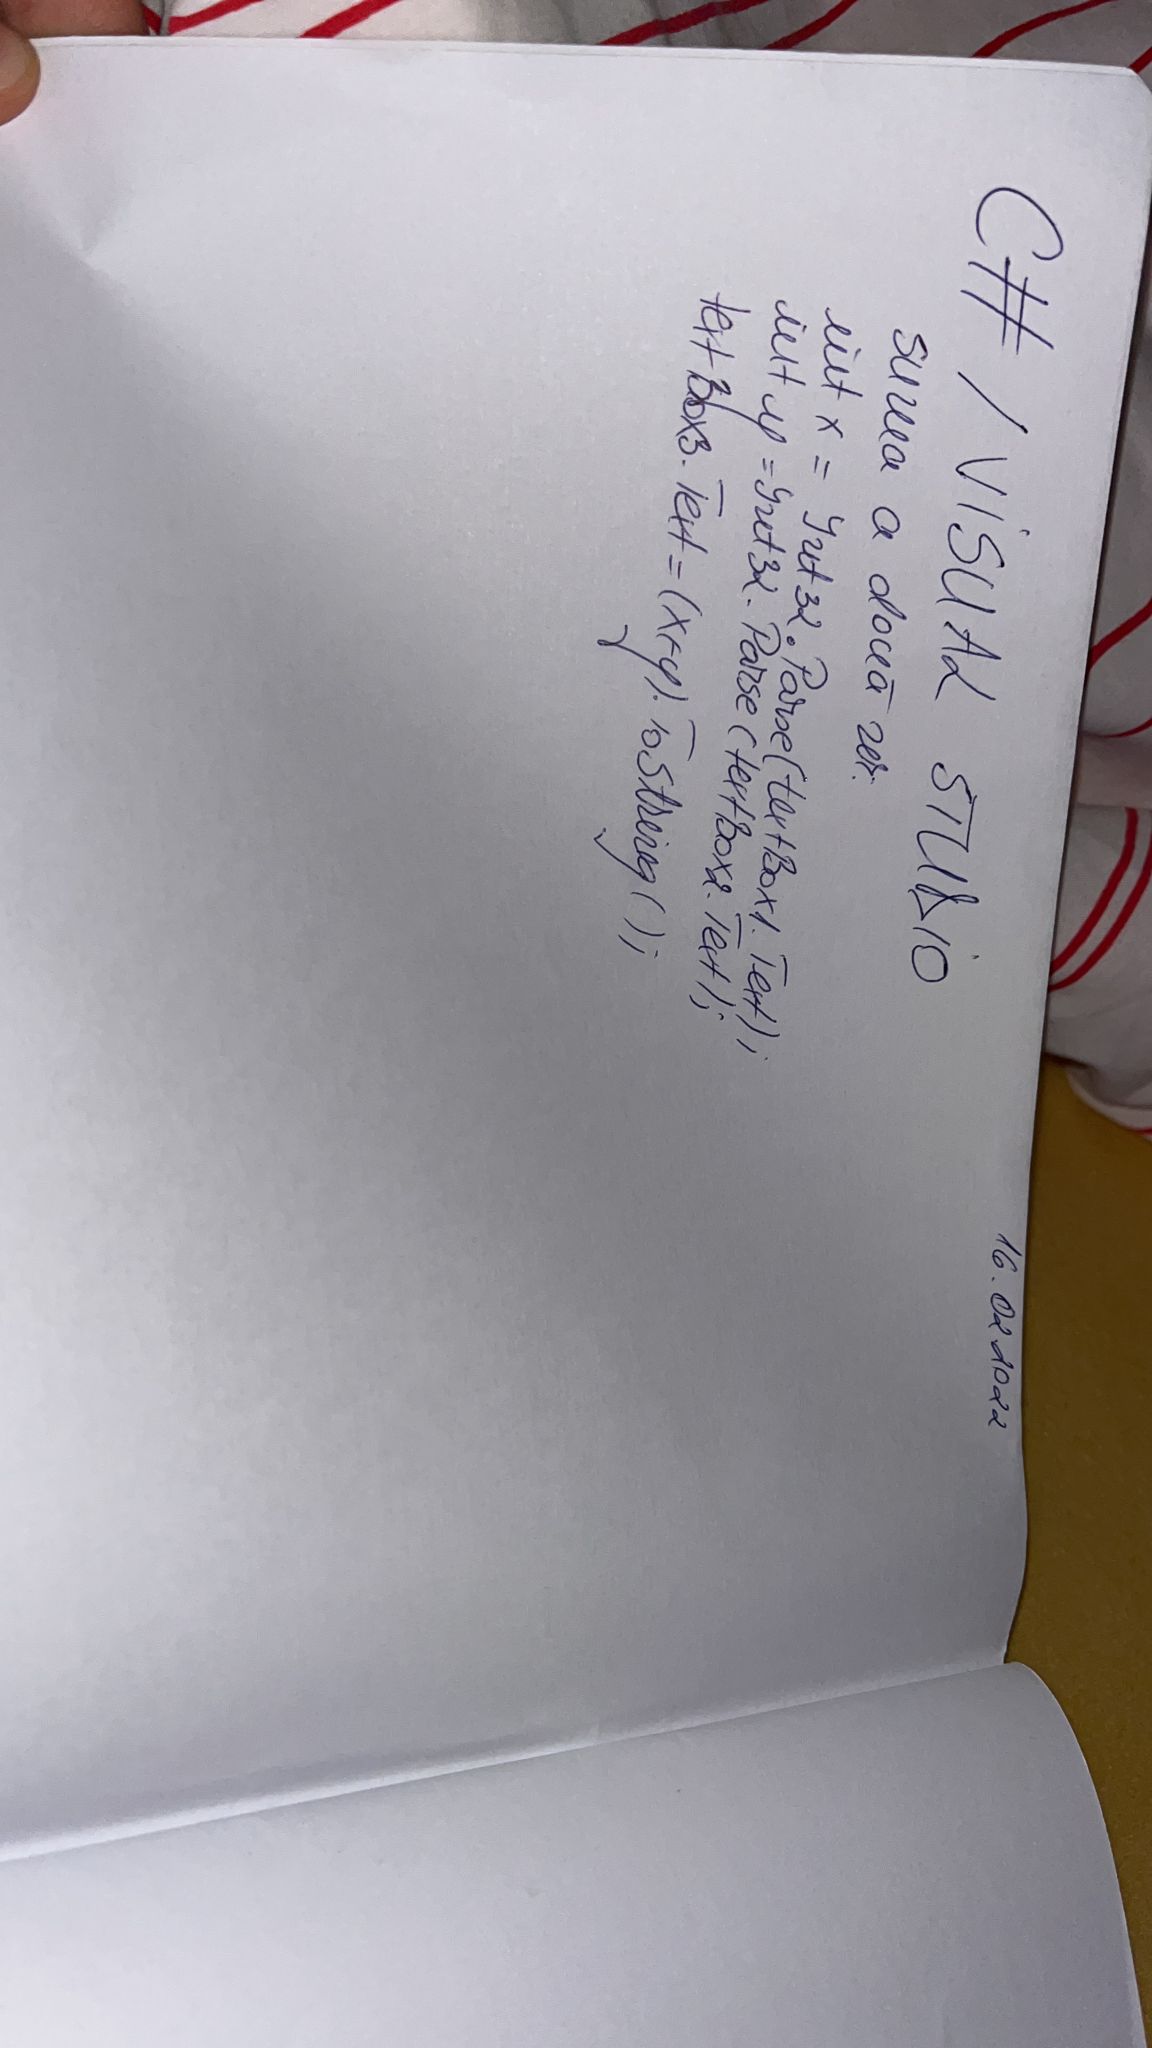 16.02.2022
C# / VISUAL STUDIO
suma a două nr.
int x = Int32.Parse(textBox1.Text);
int y = Int32.Parse(textBox2.Text);
textBox3.Text = (x+y).ToString();